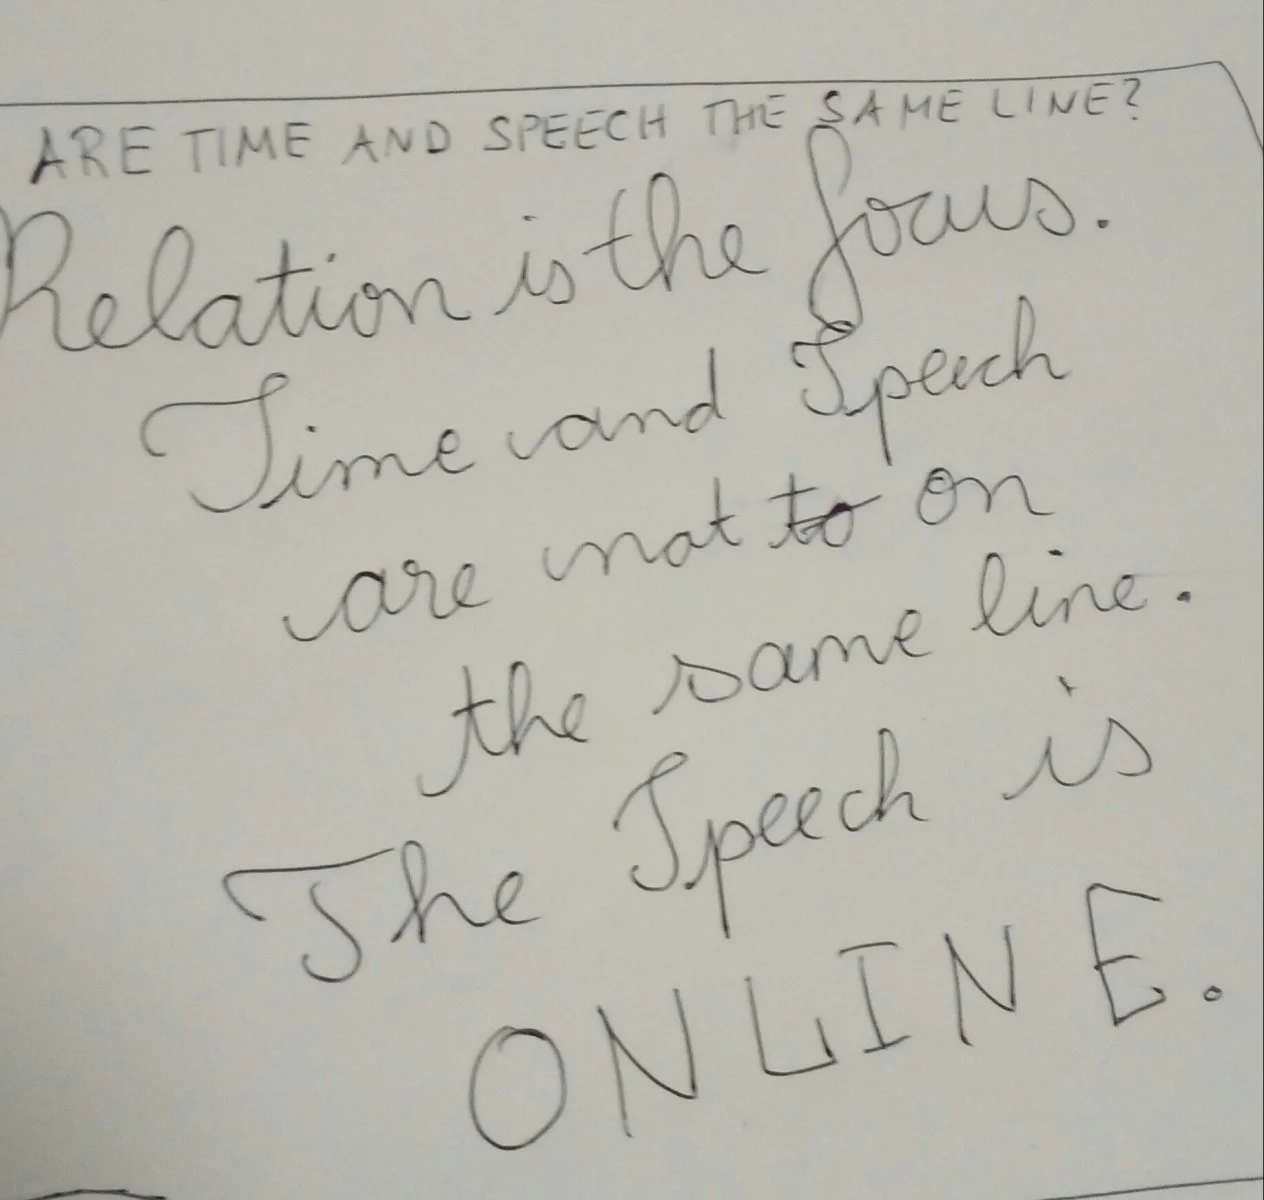 ARE TIME AND SPEECH THE SAME LINE?
Relation is the focus.
Time and Speech
are not to on
the same line.
The Speech is
ONLINE.